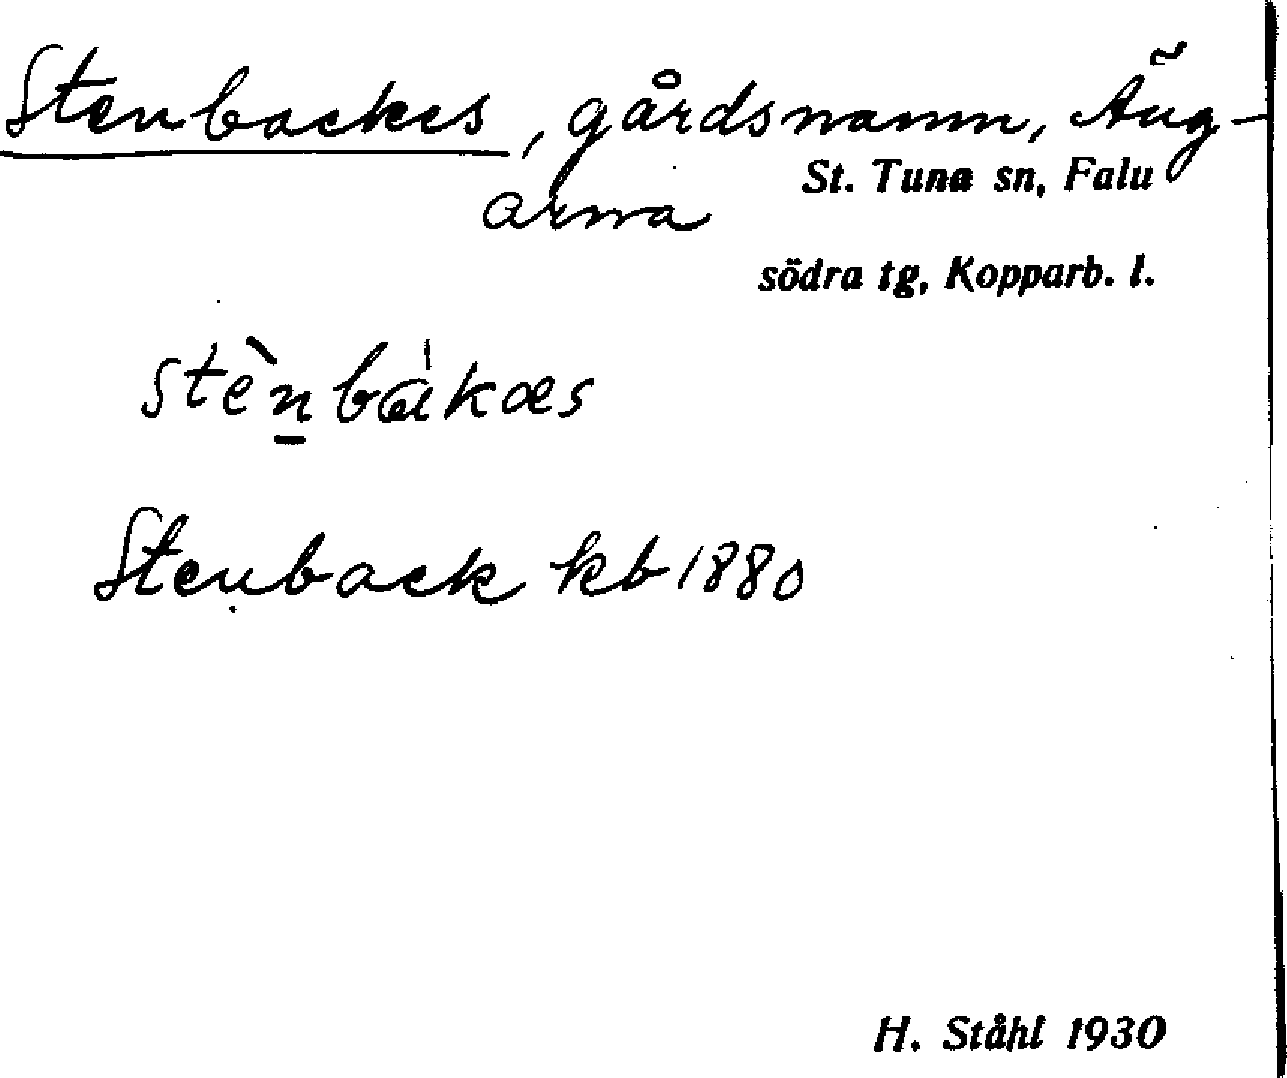 Stenbackes, gårdsnamn, Äng-
arna
St. Tuna sn, Falu
södra tg, Kopparb. l.
stènbàkæs
Stenback kb 1880
H. Ståhl 1930